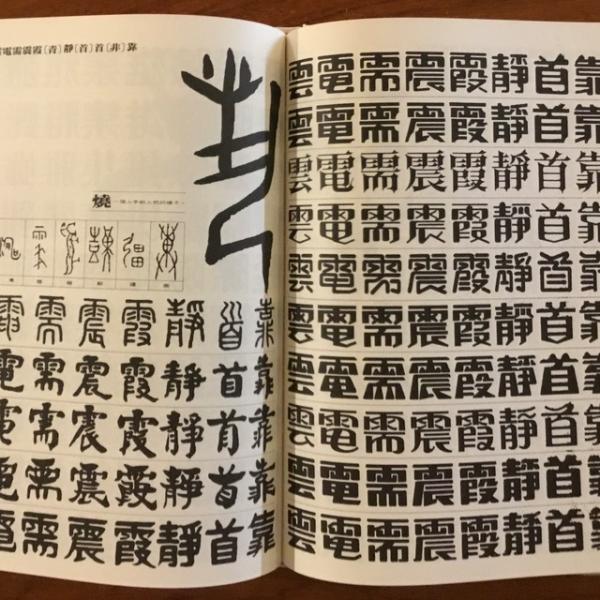 電需震霞〔青〕靜〔首〕首〔非〕靠
燒
電需震霞靜首靠
電需震霞靜首靠
電需震霞靜首靠
電需震霞靜首靠
電需震霞靜首靠
雲電需震霞靜首靠
雲電需震霞靜首靠
雲電需震霞靜首靠
雲電需震霞靜首靠
雲電需震霞靜首靠
雲電需震霞靜首靠
雲電需震霞靜首靠
雲電需震霞靜首靠
雲電需震霞靜首靠
雲電需震霞靜首靠